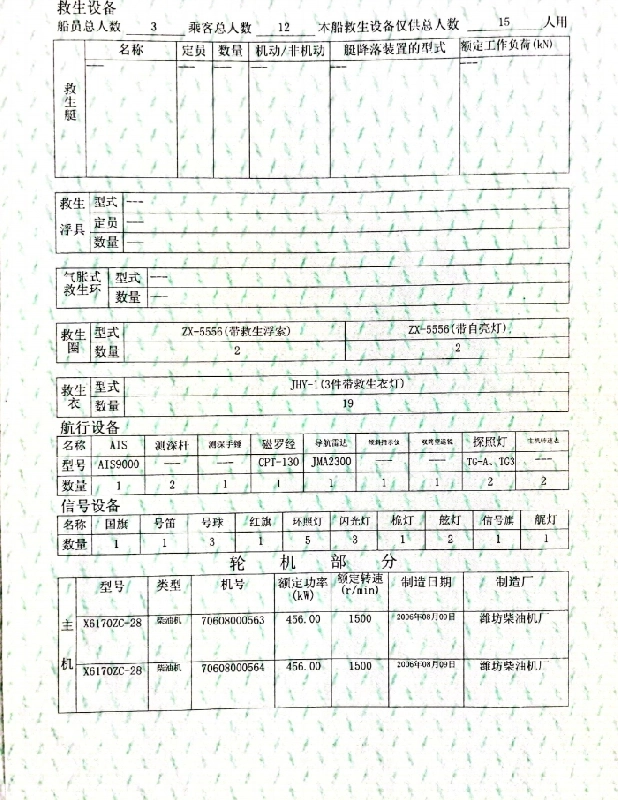 救生设备
船员总人数 3 乘客总人数 12 本船救生设备仅供总人数 15 人用
名称 定员 数量 机动/非机动 艇降落装置的型式 额定工作负荷(kN)
救生艇 --- --- --- --- --- ---
救生浮具 型式 ---
定员 ---
数量 ---
气胀式救生环 型式 ---
数量 ---
救生圈 型式 ZX-5556(带救生浮索) ZX-5556(带自亮灯)
数量 2 2
救生衣 型式 (3件带救生衣灯)
数量 19
航行设备
名称 AIS 测深杆 测深手锤 磁罗经 导航雷达 探照灯
型号 AIS9000 --- --- CPT-130 JMA2300 --- --- TG-A、TG3 ---
数量 1 2 1 1 1 1 1 2 2
信号设备
名称 国旗 号笛 号球 红旗 环照灯 闪光灯 桅灯 舷灯 信号旗 艉灯
数量 1 1 3 1 5 3 1 2 1 1
轮机部分
型号 类型 机号 额定功率(kW) 额定转速(r/min) 制造日期 制造厂
主机 X6170ZC-28 柴油机 70608000563 456.00 1500 2006年08月09日 潍坊柴油机厂
X6170ZC-28 柴油机 70608000564 456.00 1500 2006年08月09日 潍坊柴油机厂